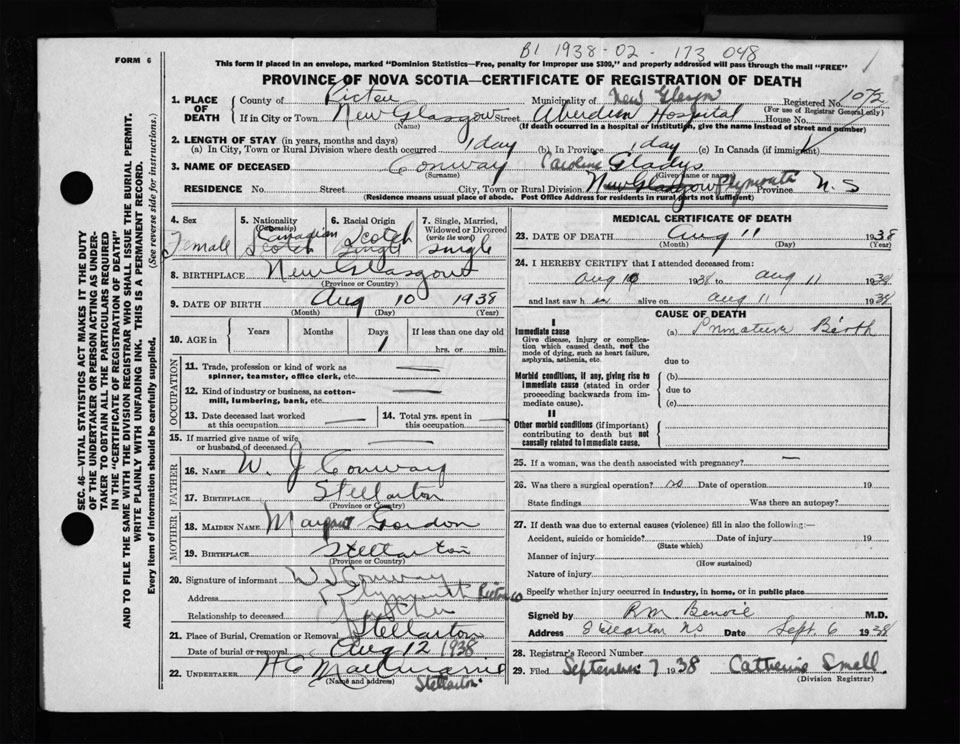 B1 1938-02-173 048
1
FORM 6
This form if placed in an envelope, marked "Dominion Statistics—Free, penalty for improper use $300," and properly addressed will pass through the mail "FREE"
PROVINCE OF NOVA SCOTIA—CERTIFICATE OF REGISTRATION OF DEATH
SEC. 46—VITAL STATISTICS ACT MAKES IT THE DUTY
OF THE UNDERTAKER OR PERSON ACTING AS UNDER-
TAKER TO OBTAIN ALL THE PARTICULARS REQUIRED
IN THE "CERTIFICATE OF REGISTRATION OF DEATH"
AND TO FILE THE SAME WITH THE DIVISION REGISTRAR WHO SHALL ISSUE THE BURIAL PERMIT.
WRITE PLAINLY WITH UNFADING INK. THIS IS A PERMANENT RECORD.
Every item of information should be carefully supplied. (See reverse side for instructions.)
1. PLACE OF DEATH County of Pictou Municipality of New Glasgow Registered No. 1072
(For use of Registrar General only)
If in City or Town New Glasgow Street Aberdeen Hospital House No.
(Name) (If death occurred in a hospital or institution, give the name instead of street and number)
2. LENGTH OF STAY (in years, months and days)
(a) In City, Town or Rural Division where death occurred 1 day (b) In Province 1 day (c) In Canada (if immigrant)
3. NAME OF DECEASED Conway Caroline Gladys
(Surname) (Given name or names)
RESIDENCE No. Street City, Town or Rural Division New Glasgow Plymouth Province N.S
(Residence means usual place of abode. Post Office Address for residents in rural parts not sufficient)
4. Sex Female
5. Nationality (Citizenship) Canadian Scotch
6. Racial Origin Scotch Single
7. Single, Married, Widowed or Divorced (write the word) single
8. BIRTHPLACE New Glasgow
(Province or Country)
9. DATE OF BIRTH Aug 10 1938
(Month) (Day) (Year)
10. AGE in Years Months Days 1 If less than one day old hrs. or min.
OCCUPATION
11. Trade, profession or kind of work as spinner, teamster, office clerk, etc. —
12. Kind of industry or business, as cotton-mill, lumbering, bank, etc. —
13. Date deceased last worked at this occupation — 14. Total yrs. spent in this occupation —
15. If married give name of wife or husband of deceased —
FATHER
16. NAME W. J Conway
17. BIRTHPLACE Stellarton
(Province or Country)
MOTHER
18. MAIDEN NAME Margaret Gordon
19. BIRTHPLACE Stellarton
(Province or Country)
20. Signature of informant W J Conway
Address Plymouth Pictou Co
Relationship to deceased Father
21. Place of Burial, Cremation or Removal Stellarton
Date of burial or removal Aug 12 1938
22. UNDERTAKER
(Name and address) Stellarton
MEDICAL CERTIFICATE OF DEATH
23. DATE OF DEATH Aug 11 1938
(Month) (Day) (Year)
24. I HEREBY CERTIFY that I attended deceased from:
Aug 10 1938 to Aug 11 1938
and last saw h er alive on Aug 11 1938
CAUSE OF DEATH
I
Immediate cause (a) Premature Birth
Give disease, injury or complication which caused death, not the mode of dying, such as heart failure, asphyxia, asthenia, etc.
due to
Morbid conditions, if any, giving rise to immediate cause (stated in order proceeding backwards from immediate cause).
(b)
due to
(c)
II
Other morbid conditions (if important) contributing to death but not causally related to immediate cause.
25. If a woman, was the death associated with pregnancy? —
26. Was there a surgical operation? no Date of operation 19
State findings Was there an autopsy?
27. If death was due to external causes (violence) fill in also the following:—
Accident, suicide or homicide? Date of injury 19
(State which)
Manner of injury
(How sustained)
Nature of injury
Specify whether injury occurred in industry, in home, or in public place
Signed by R M Benvie M.D.
Address Stellarton NS Date Sept. 6 1938
28. Registrar's Record Number
29. Filed September 7 1938 Catherine Small
(Division Registrar)